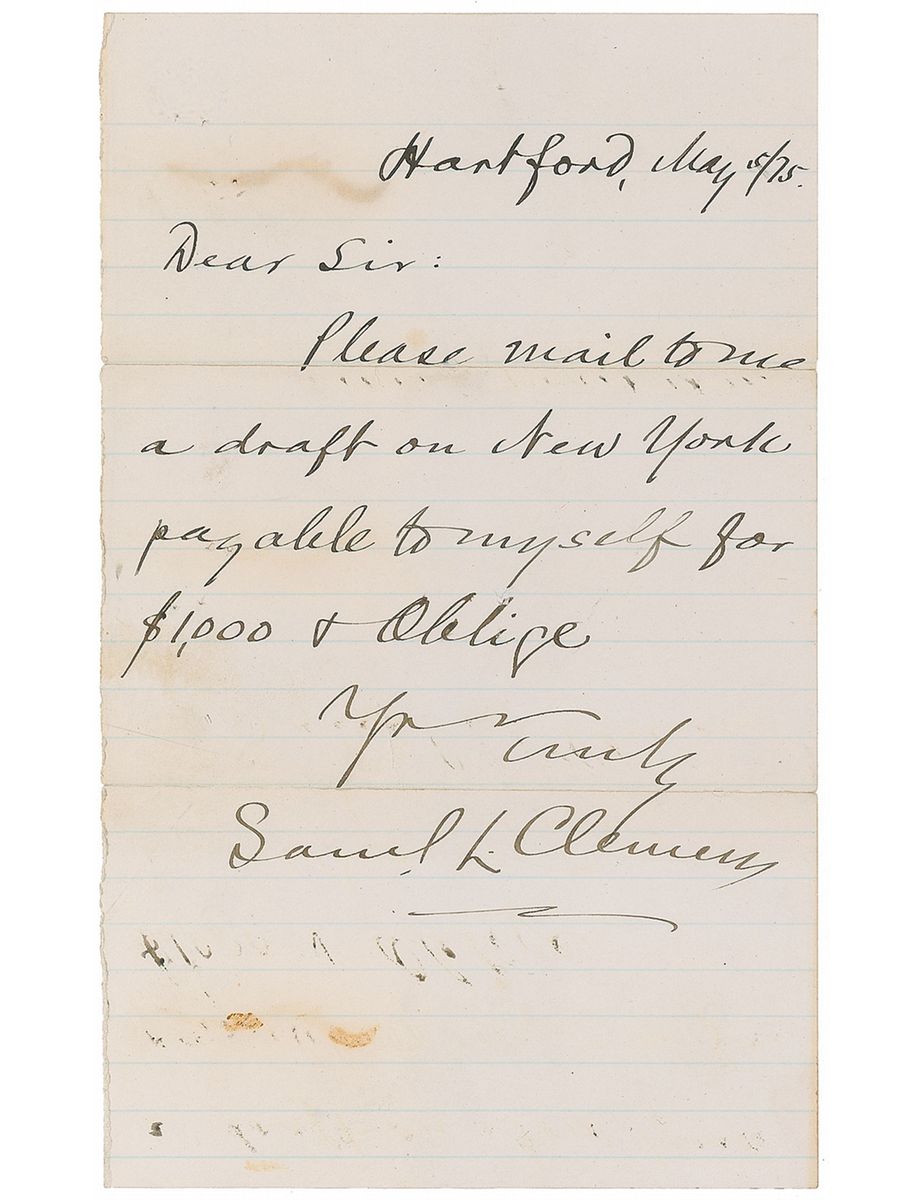 Hartford, May 5/75.
Dear Sir:
Please mail to me
a draft on New York
payable to myself for
$1,000 & Oblige
Yr Truly
Saml. L. Clemens